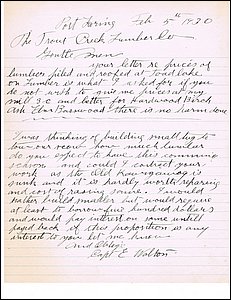 Port Loring Feb 5th 1920
The Trout Creek Lumber Co
Gentlemen
your letter re prices of
lumber piled and roofed at Toad lake
on Lumber is what I asked for if you
do not wish to give me prices at my
mill 3 C and better for Hardwood Birch
Ash Elm Basswood There is no harm done
I was thinking of building small tug to
tow our and how much lumber
do you expect to have this coming
season and could I contract your
work as the Old Kawigawag is
sunk and it is hardly worth repairing
and cost of raising same. I would
rather build smaller but would require
at least to borrow five hundred dollars
and would pay interest on same until
paid back if this proposition is any
interest to you let me know
and Oblige
Capt E Walton